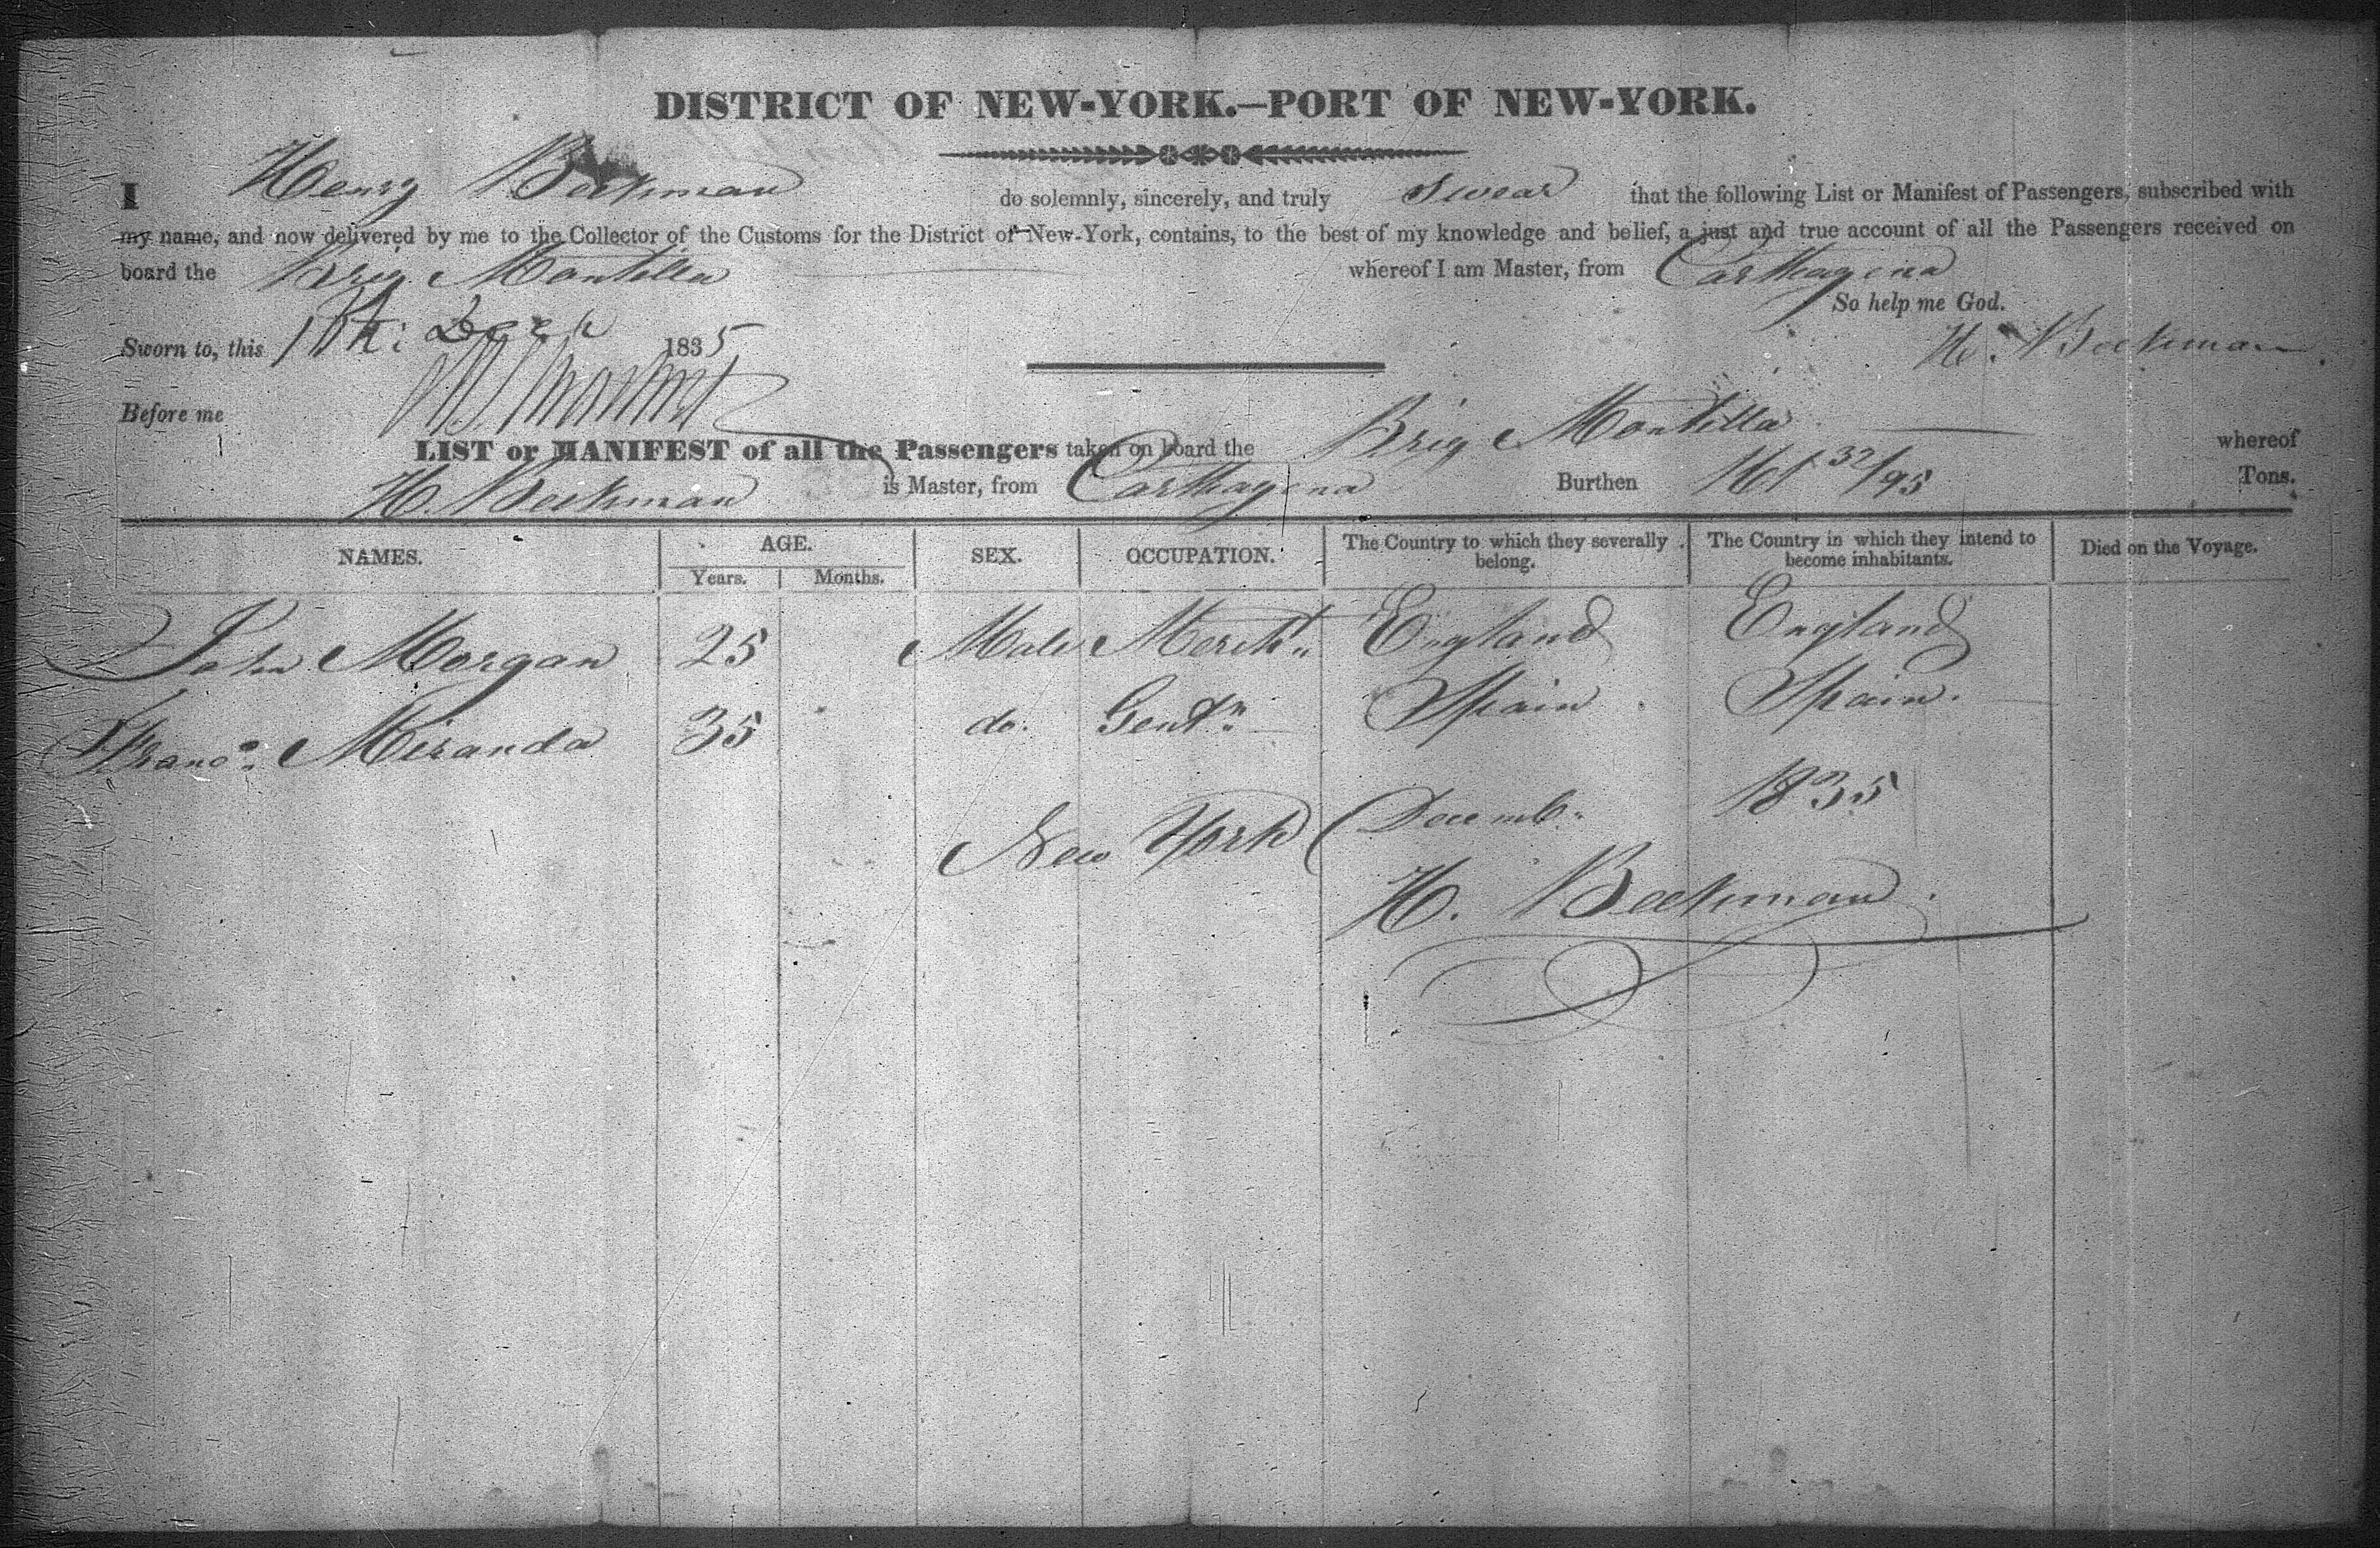 DISTRICT OF NEW-YORK.—PORT OF NEW-YORK.
I Henry Beekman do solemnly, sincerely, and truly Swear that the following List or Manifest of Passengers, subscribed with
my name, and now delivered by me to the Collector of the Customs for the District of New-York, contains, to the best of my knowledge and belief, a just and true account of all the Passengers received on
board the Brig Mantilla whereof I am Master, from Carthagena
So help me God.
Sworn to, this 1835
H. Beekman
Before me
LIST or MANIFEST of all the Passengers taken on board the Brig Mantilla whereof
H. Beekman is Master, from Carthagena Burthen 161 32/95 Tons.
NAMES. AGE. SEX. OCCUPATION. The Country to which they severally belong. The Country in which they intend to become inhabitants. Died on the Voyage.
Years. Months.
John Morgan 25 Male Mercht. England England
Franco. Miranda 35 do. Gentn. Spain Spain.
New York Decemb. 1835
H. Beekman.